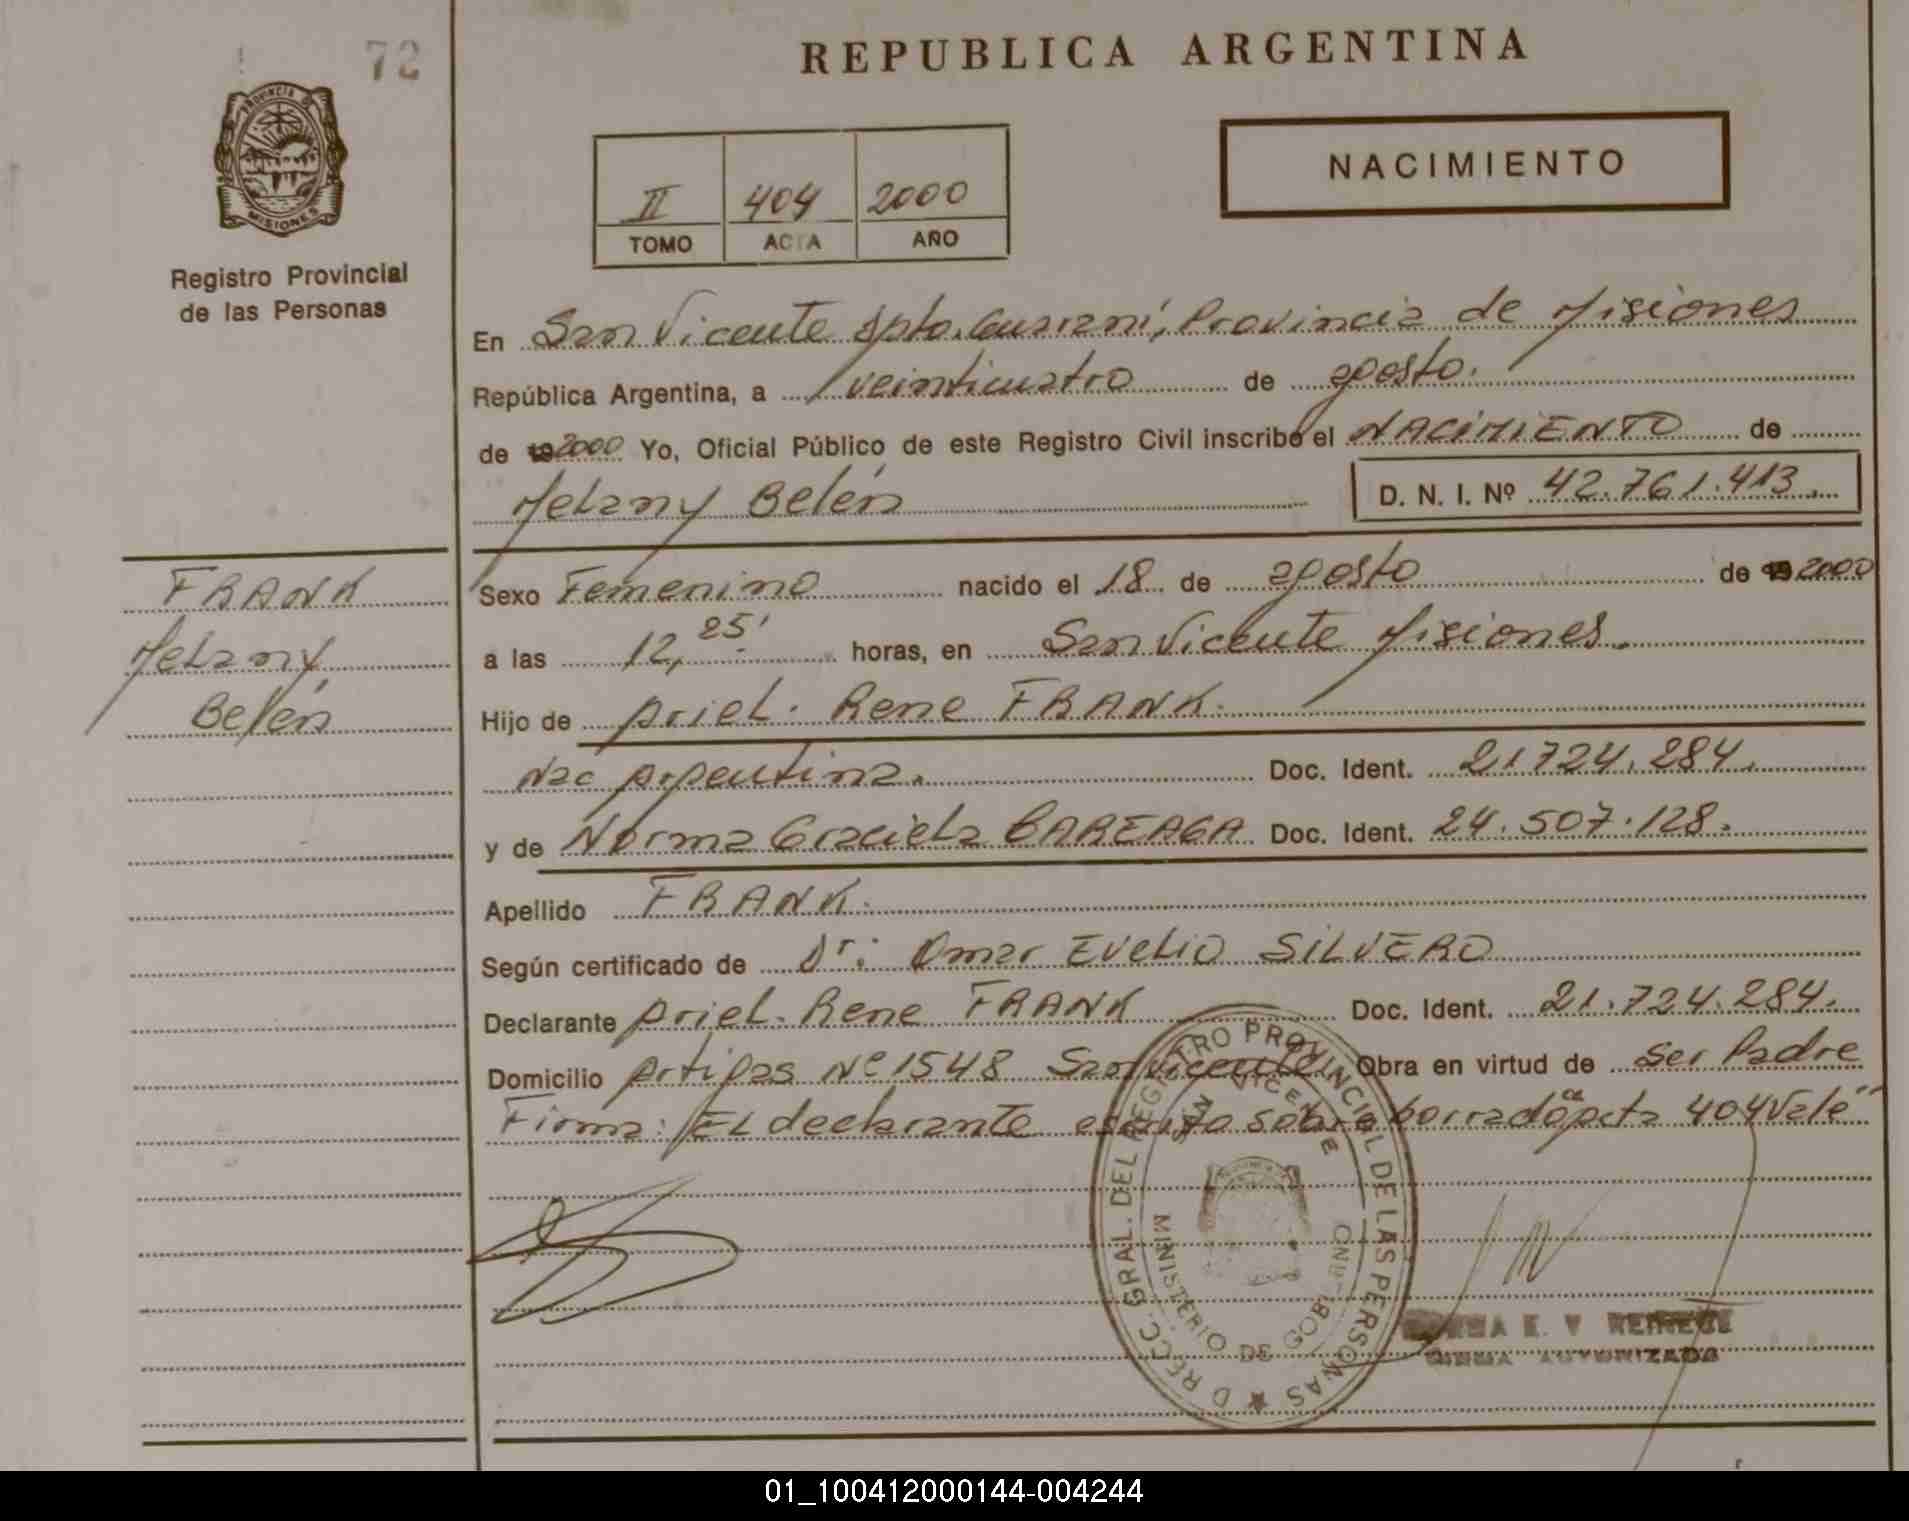 72
REPUBLICA ARGENTINA
PROVINCIA DE
MISIONES
Registro Provincial
de las Personas
II 404 2000
TOMO ACTA AÑO
NACIMIENTO
En San Vicente Dpto. Guarani, Provincia de Misiones
República Argentina, a veinticuatro de agosto.
de 19 2000 Yo, Oficial Público de este Registro Civil inscribo el NACIMIENTO de
Melany Belén D. N. I. Nº 42.761.413.
FRANK
Melany
Belén
Sexo Femenino nacido el 18 de agosto de 19 2000
a las 12,25' horas, en San Vicente Misiones.
Hijo de Ariel. Rene FRANK.
Nac Argentina. Doc. Ident. 21724.284.
y de Norma Graciela BAREAGA Doc. Ident. 24.507.128.
Apellido FRANK.
Según certificado de Dr: Omar Evelio SILVERO
Declarante Ariel. Rene FRANK Doc. Ident. 21.724.284.
Domicilio Artigas Nº 1548 San Vicente Obra en virtud de ser Padre
Firma: El declarante escrito sobre borrado acta 404 Vale"
DIRECC. GRAL. DEL REGISTRO PROVINCIAL DE LAS PERSONAS
SAN VICENTE
MINISTERIO DE GOBIERNO
NORMA E. V. REINEGE
FIRMA AUTORIZADA
01_100412000144-004244